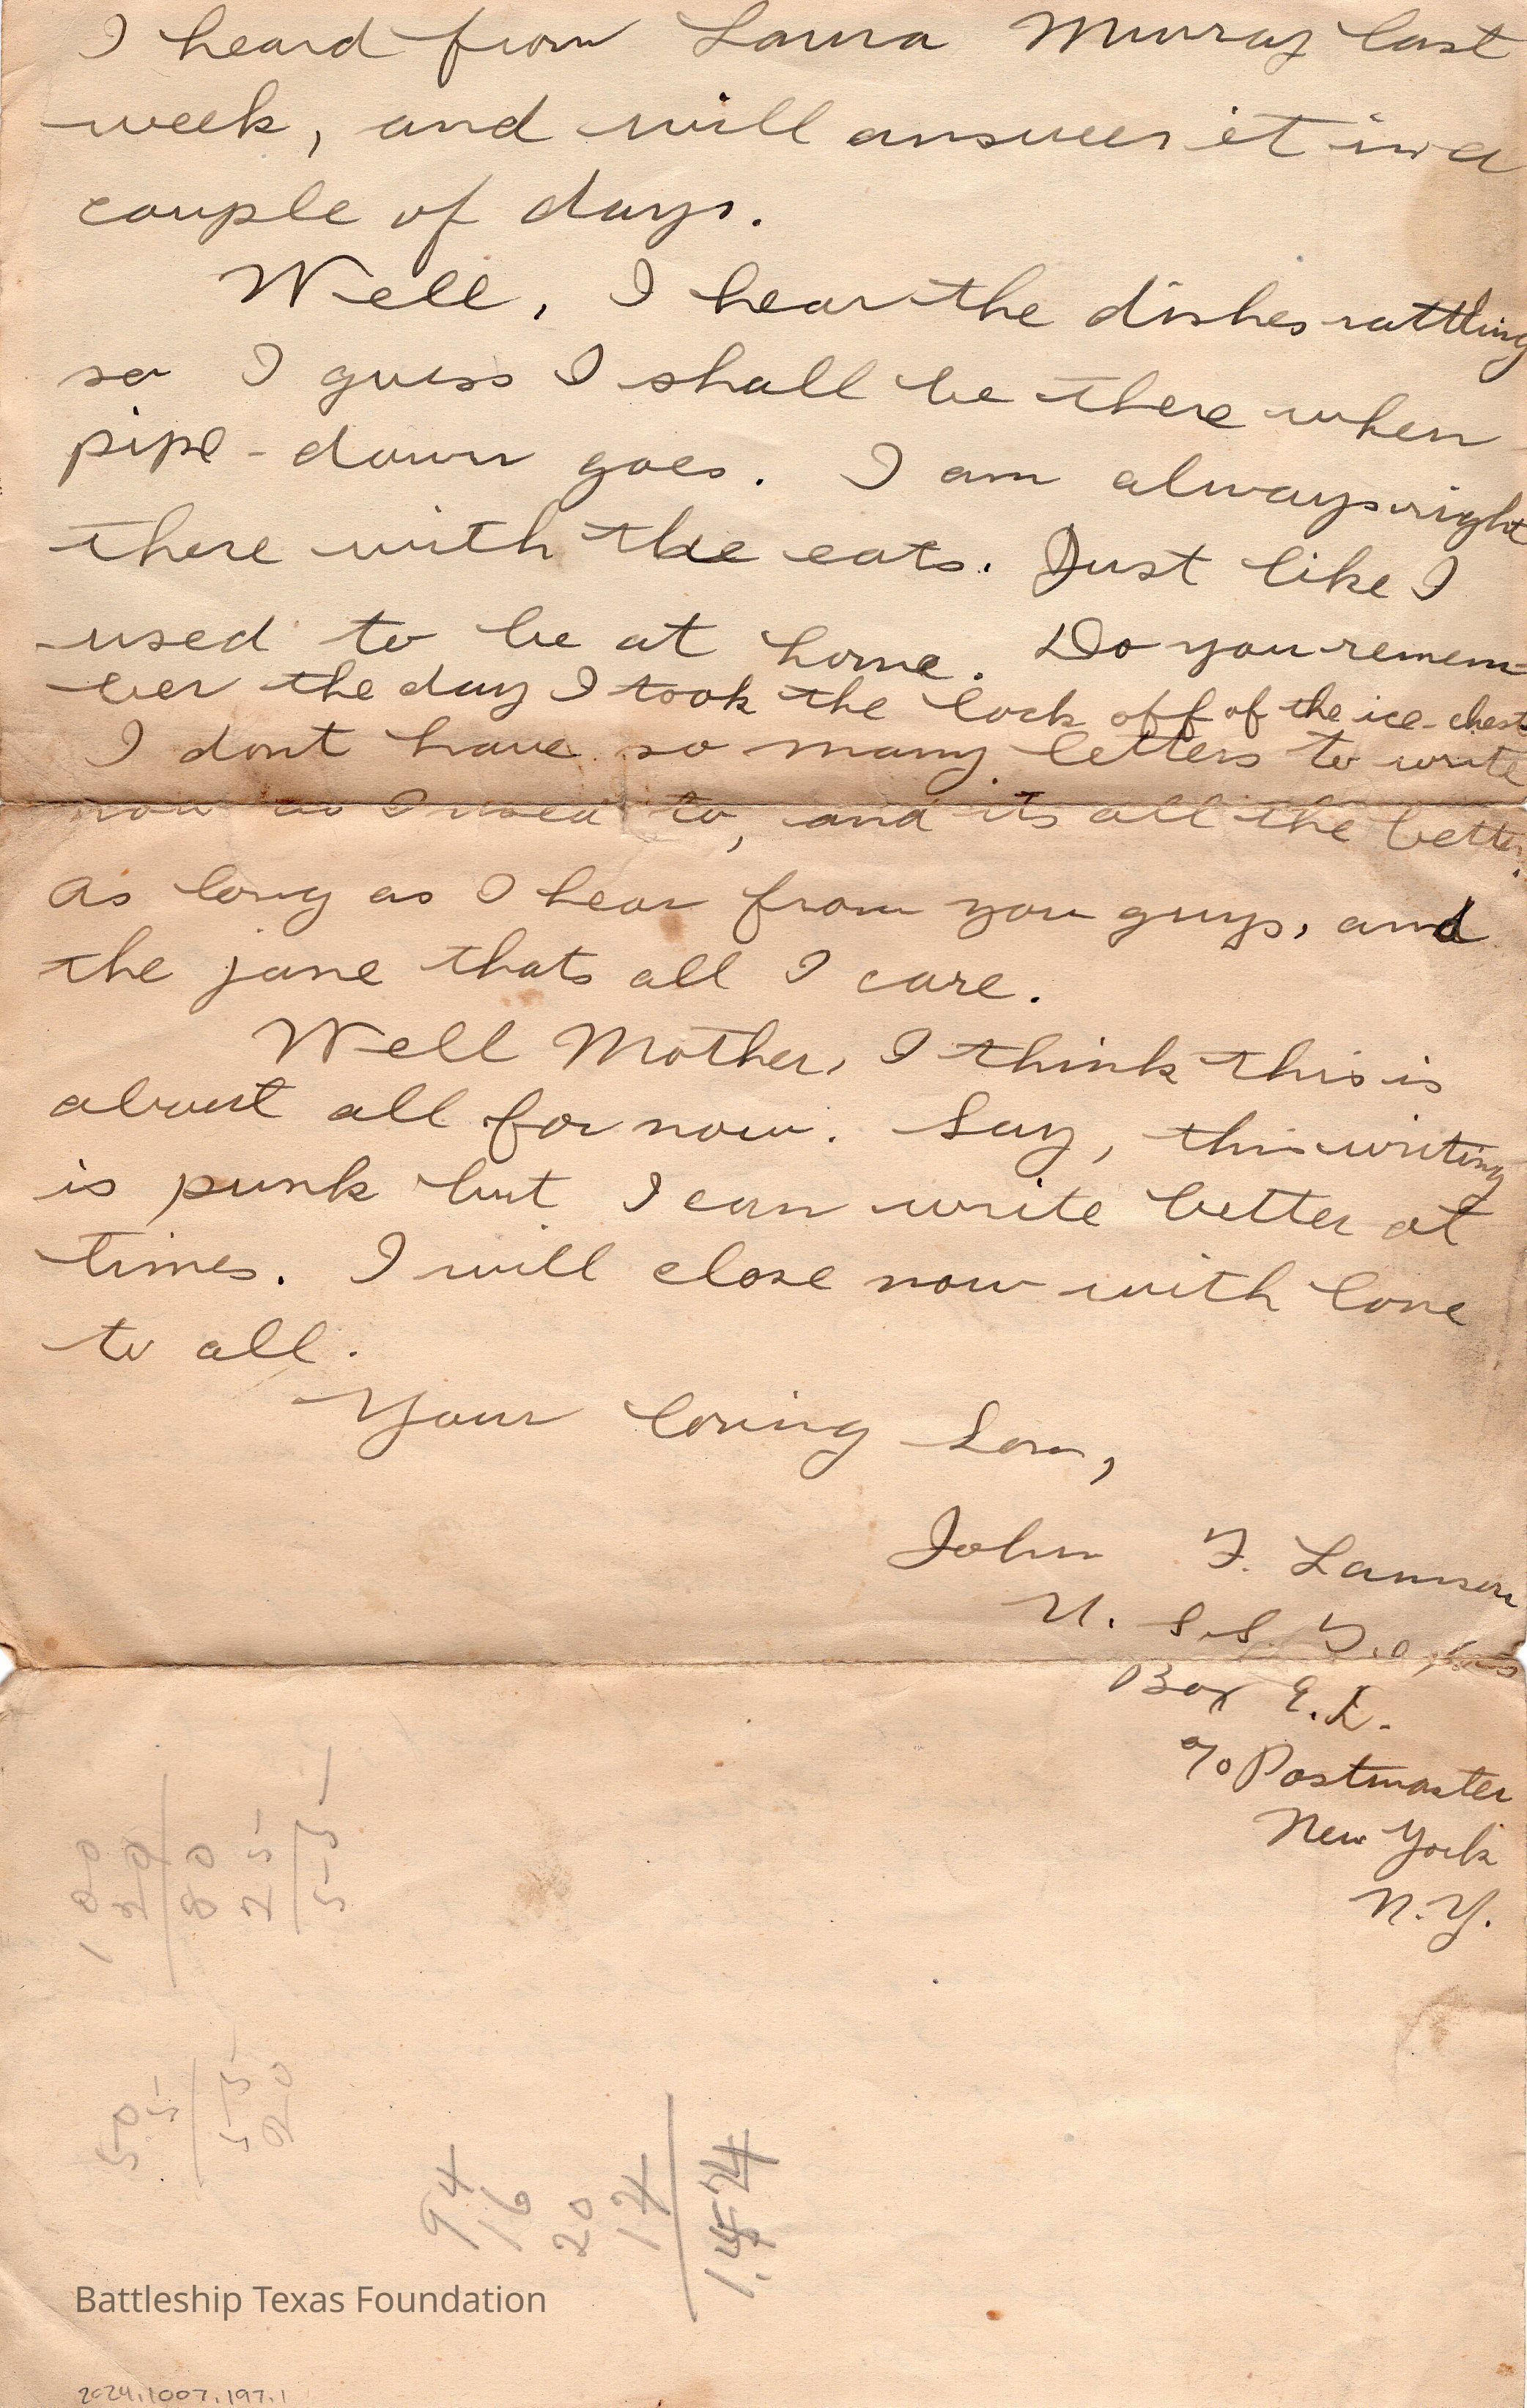 I heard from Laura Murray last
week, and will answer it in a
couple of days.
Well, I hear the dishes rattling
so I guess I shall be there when
pipe-down goes. I am always right
there with the eats. Just like I
used to be at home. Do you remem-
ber the day I took the lock off of the ice-chest
I dont have so many letters to write
now as I used to, and its all the better.
As long as I hear from you guys, and
the jane thats all I care.
Well Mother, I think this is
about all for now. Say, this writing
is punk but I can write better at
times. I will close now with love
to all.
Your loving Son,
John F. Lamson
U. S. S. Texas
Box E.L.
c/o Postmaster
New York
N.Y.
100
20
80
25
55
50
5
55
20
94
16
20
14
Battleship Texas Foundation
2024.1007.197.1